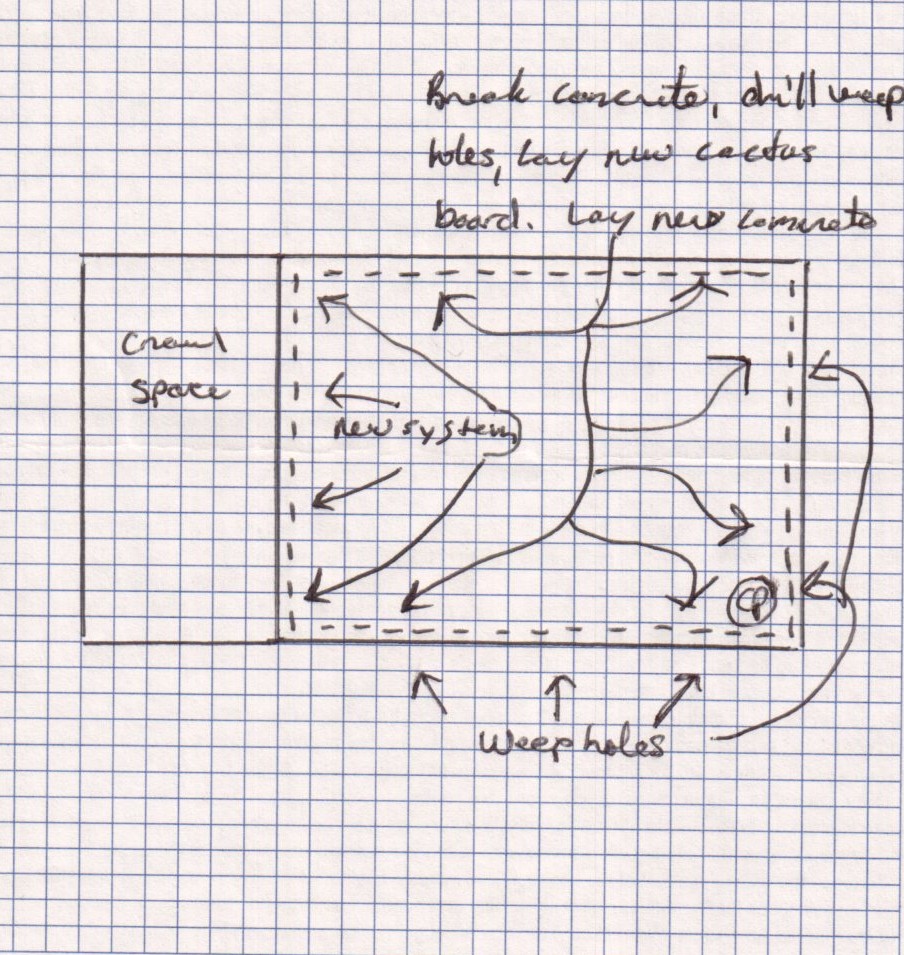 Break concrete, drill weep
holes, lay new cactus
board. Lay new concrete
Crawl
space
new system
CP
Weep holes